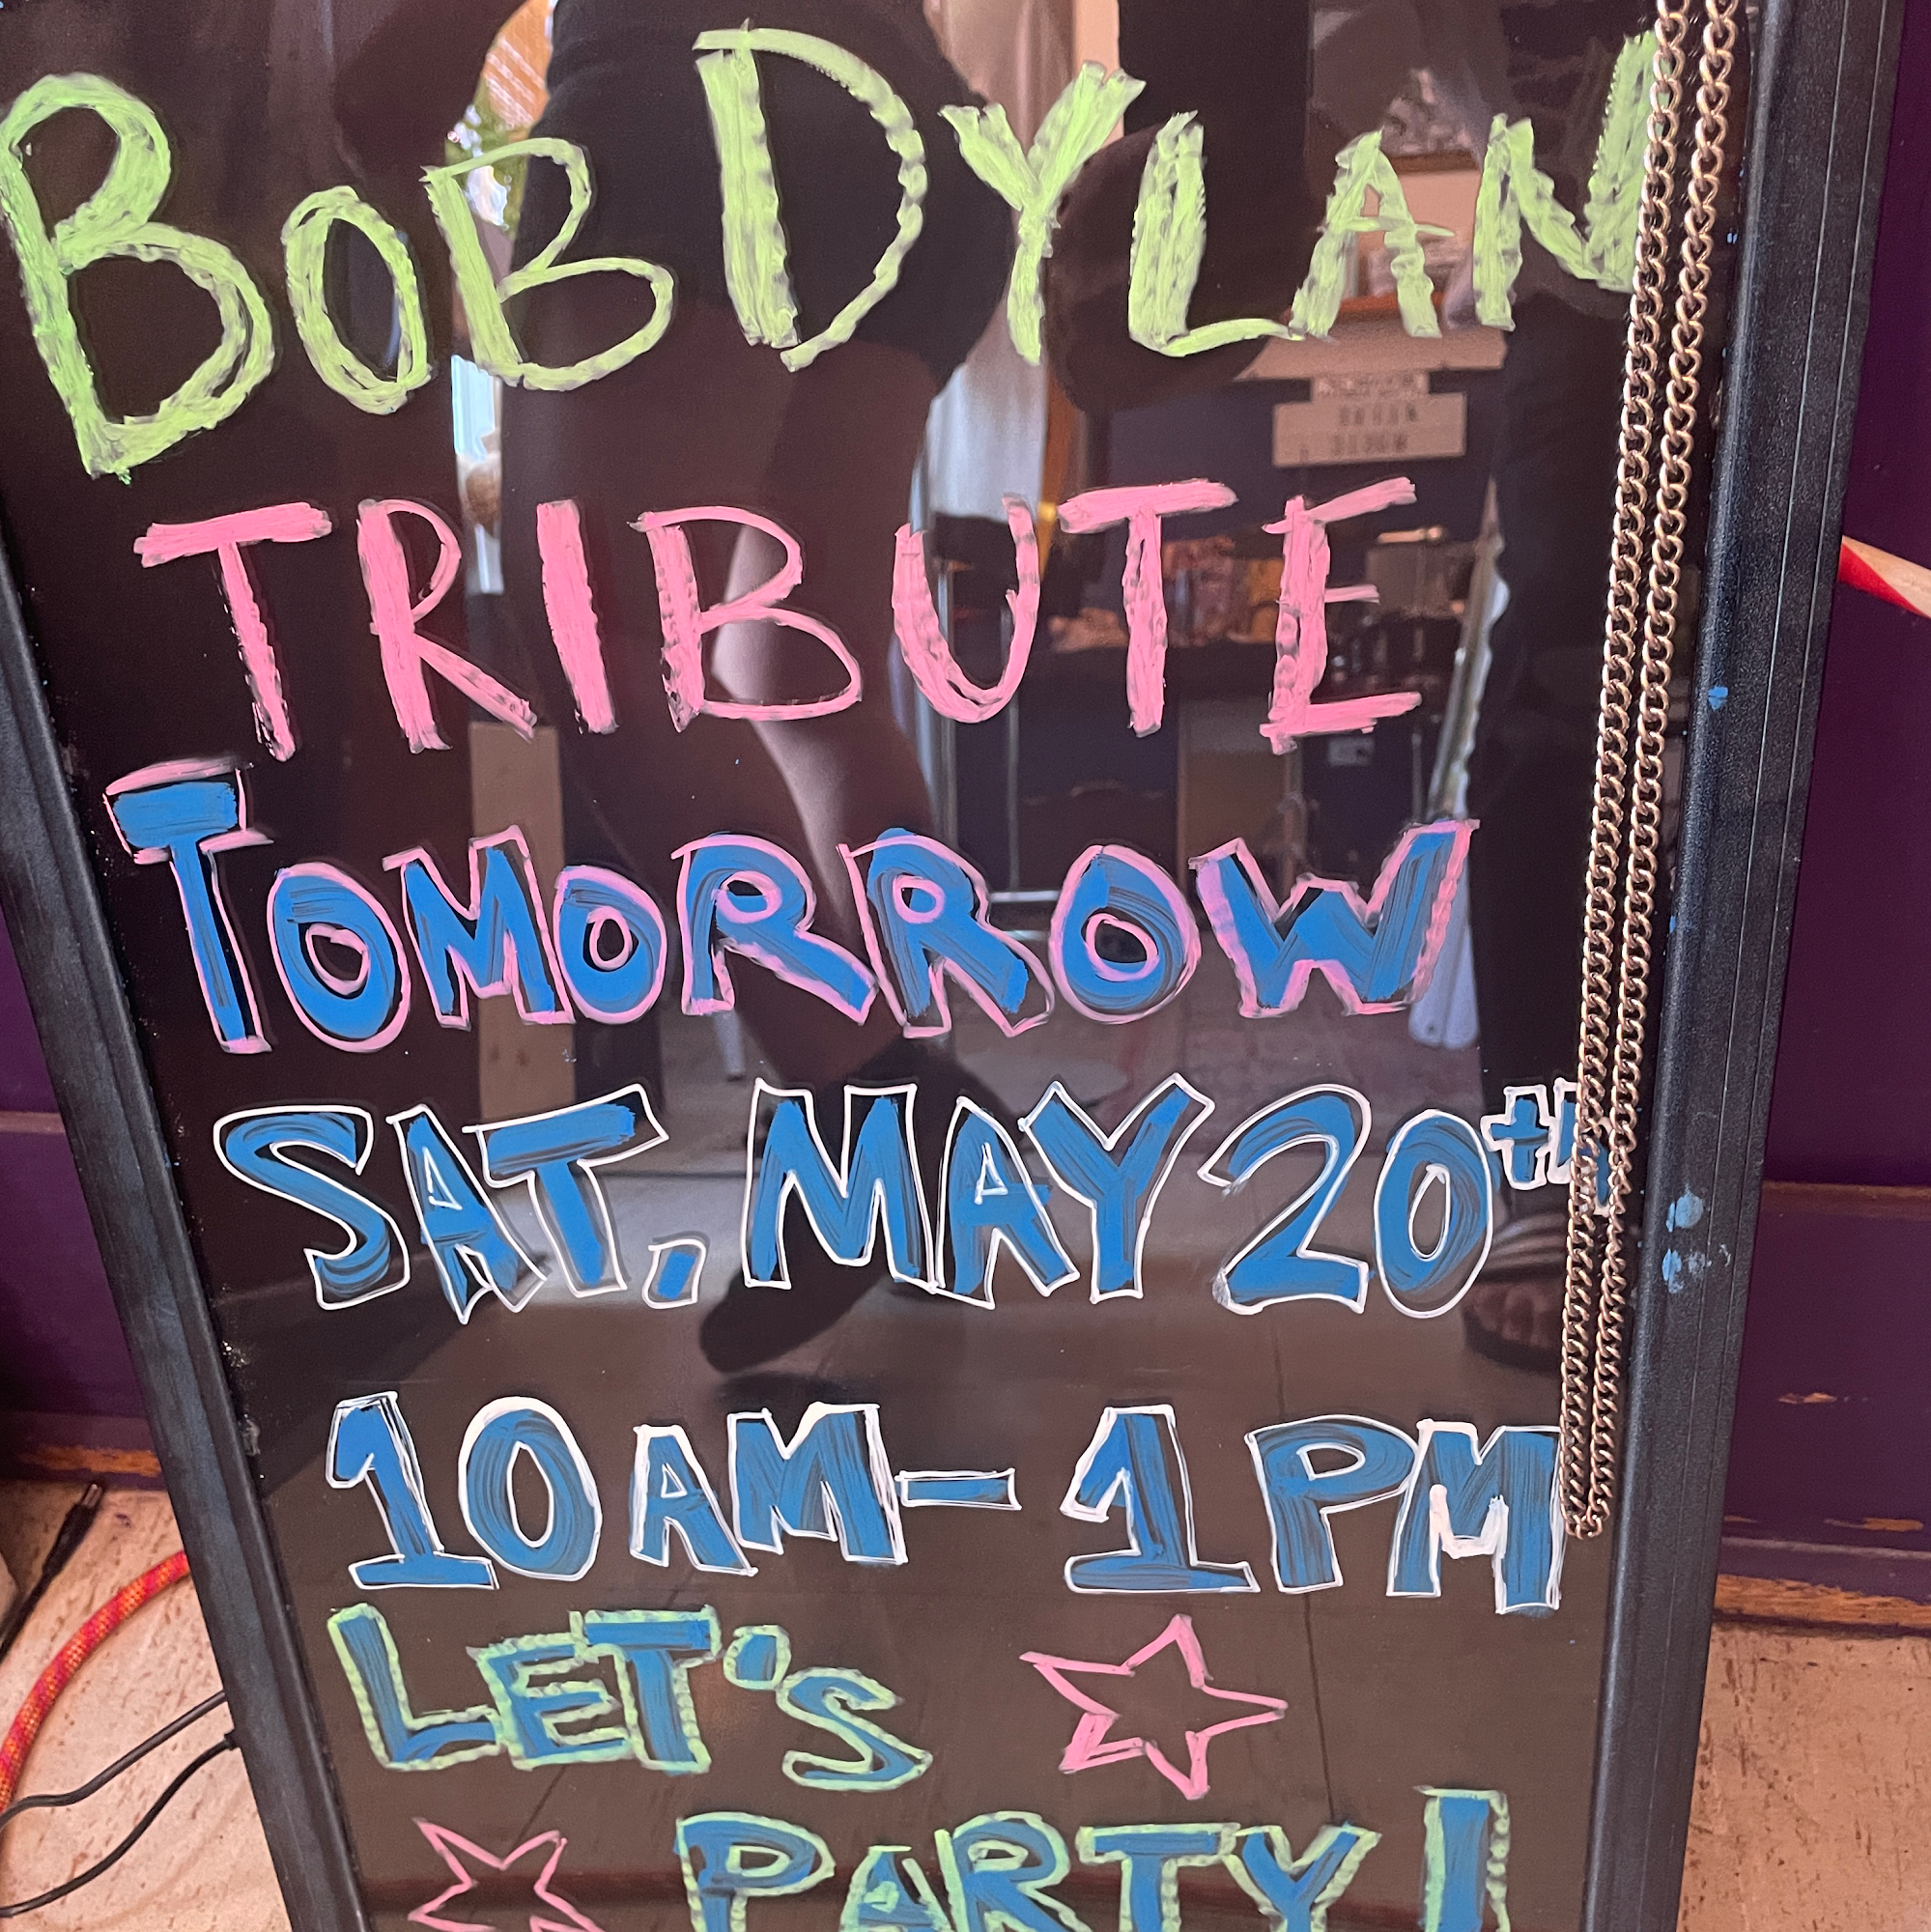 BOB DYLAN
TRIBUTE
TOMORROW
SAT. MAY 20th
10AM-1PM
LET'S
PARTY!